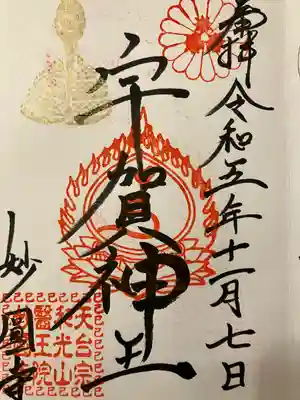 奉拝 令和五年十一月七日
宇賀神王
妙圓寺
天台宗
和光山
醫王院